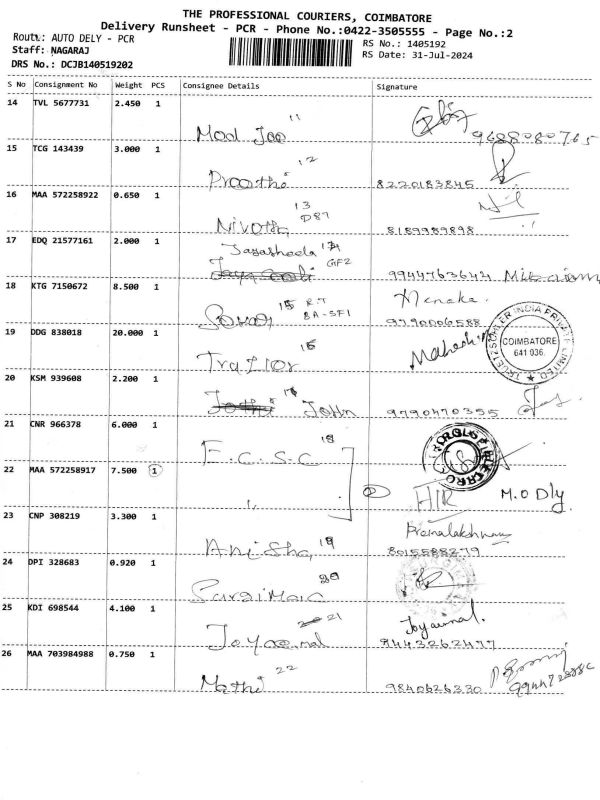 THE PROFESSIONAL COURIERS, COIMBATORE
Delivery Runsheet - PCR - Phone No.:0422-3505555 - Page No.:2
Route: AUTO DELY - PCR
RS No.: 1405192
Staff: NAGARAJ
RS Date: 31-Jul-2024
DRS No.: DCJB140519202
S No Consignment No Weight PCS Consignee Details Signature
14 TVL 5677731 2.450 1
11
Mod Joo 9688080765
15 TCG 143439 3.000 1
12
Preethi 8220183845
16 MAA 572258922 0.650 1
13
D87
Nivotha 8189989898
17 EDQ 21577161 2.000 1
Jayasheela 14
GF2
9944763642
18 KTG 7150672 8.500 1 Menaka.
15 R.T
8A-SF1
9790006588
19 DDG 838018 20.000 1 Mahesh
COIMBATORE
641 036.
16
20 KSM 939608 2.200 1
John 9790470355
21 CNR 966378 6.000 1
18
E.C.S.C
22 MAA 572258917 7.500 1
HR M.O Dly.
23 CNP 308219 3.300 1
Anisha 19 8015588279
24 DPI 328683 0.920 1
20
25 KDI 698544 4.100 1
21
Joyaamal 9443262477
26 MAA 703984988 0.750 1
22
Mathi 9840626330